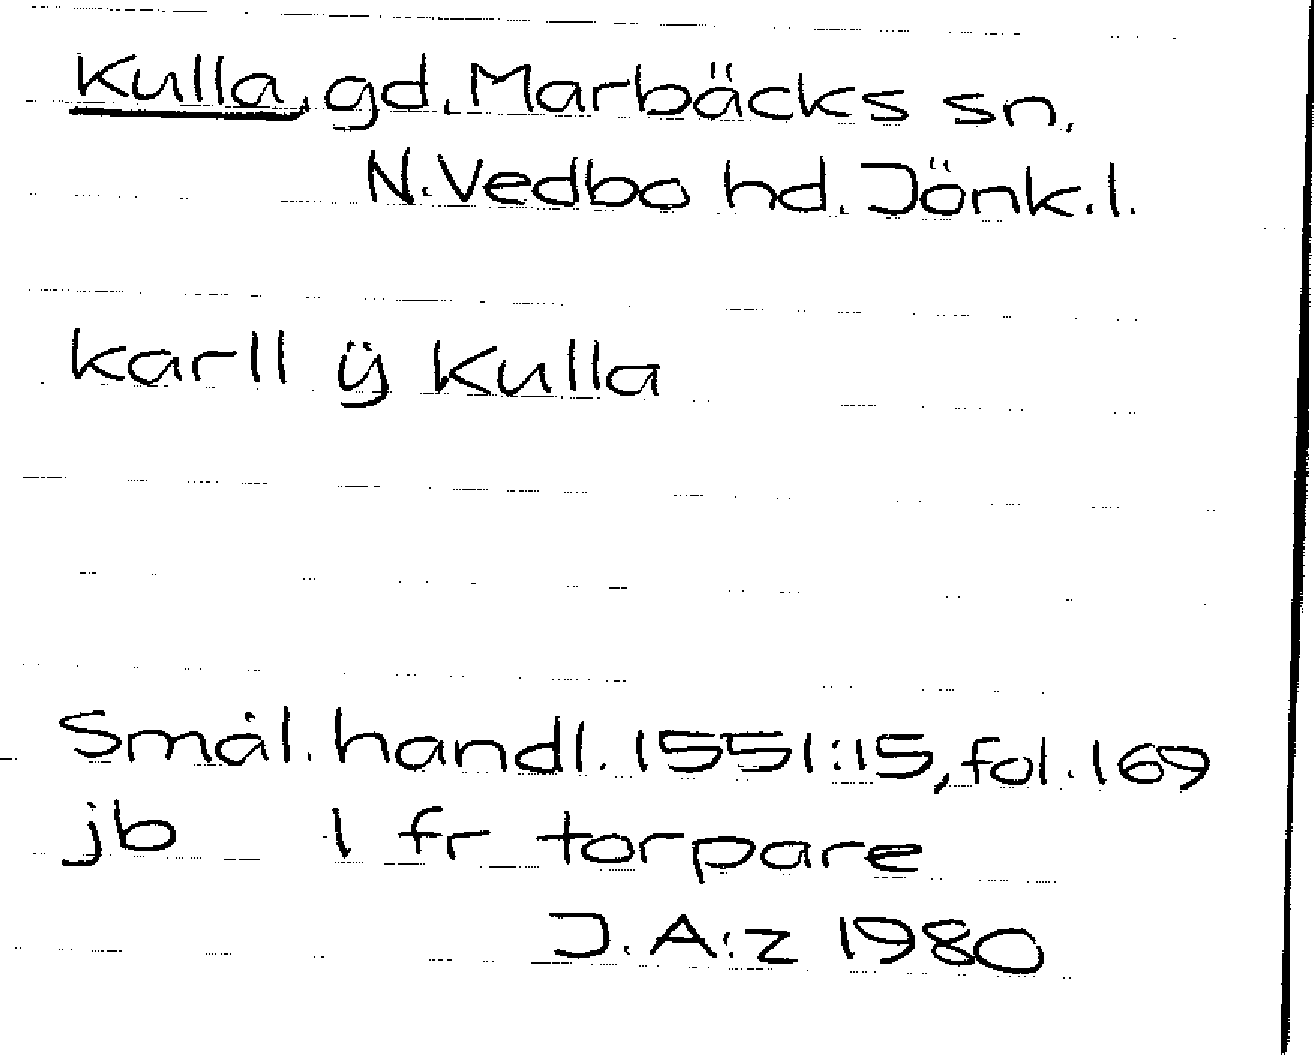 Kulla, gd, Marbäcks sn,
N. Vedbo hd. Jönk.l.
karll ÿ Kulla
Smål. handl. 1551:15, fol. 169
jb 1 fr torpare
J. A:z 1980